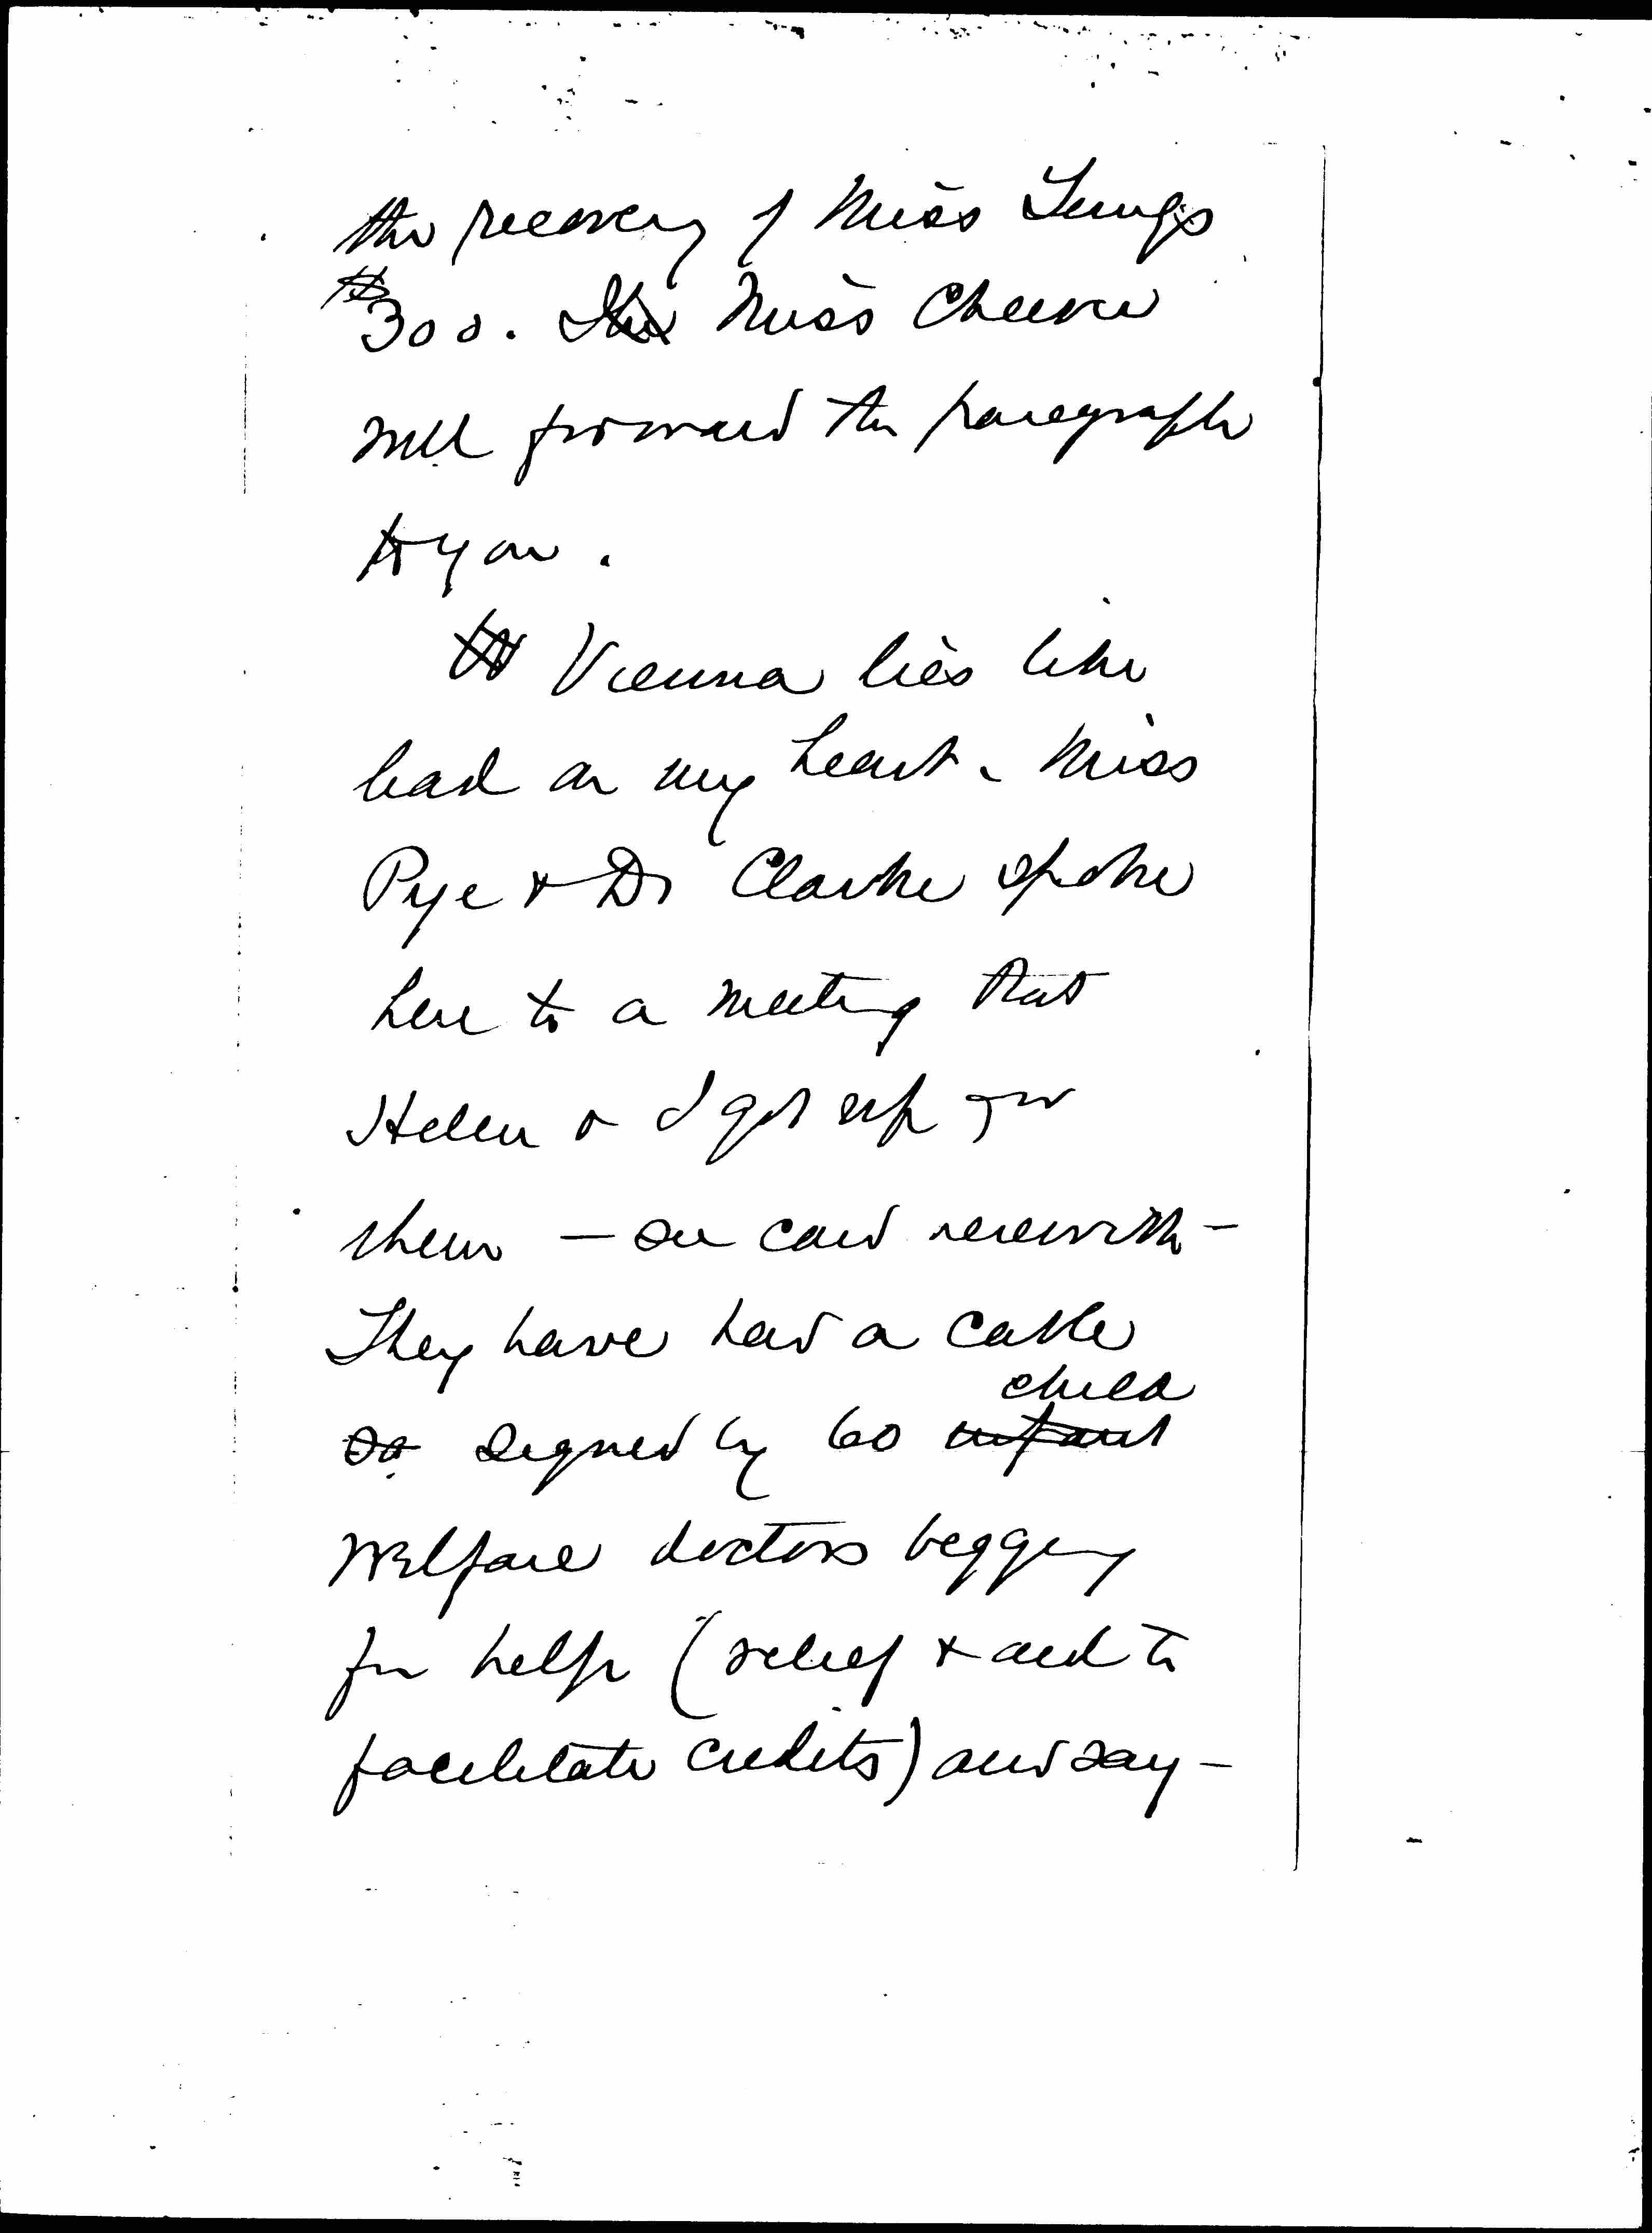 the recovery of Miss
$300. Miss Cheever
will forward the paragraph
to you.
Vienna lies like
lead on my heart. Miss
Pye & Dr Clarke spoke
here to a meeting that
Helen & I got up for
them — see card herewith —
They have had a cable
child
so signed by 60 infant
Welfare doctors begging
for help (relief & aid to
facilitate credits) and say —